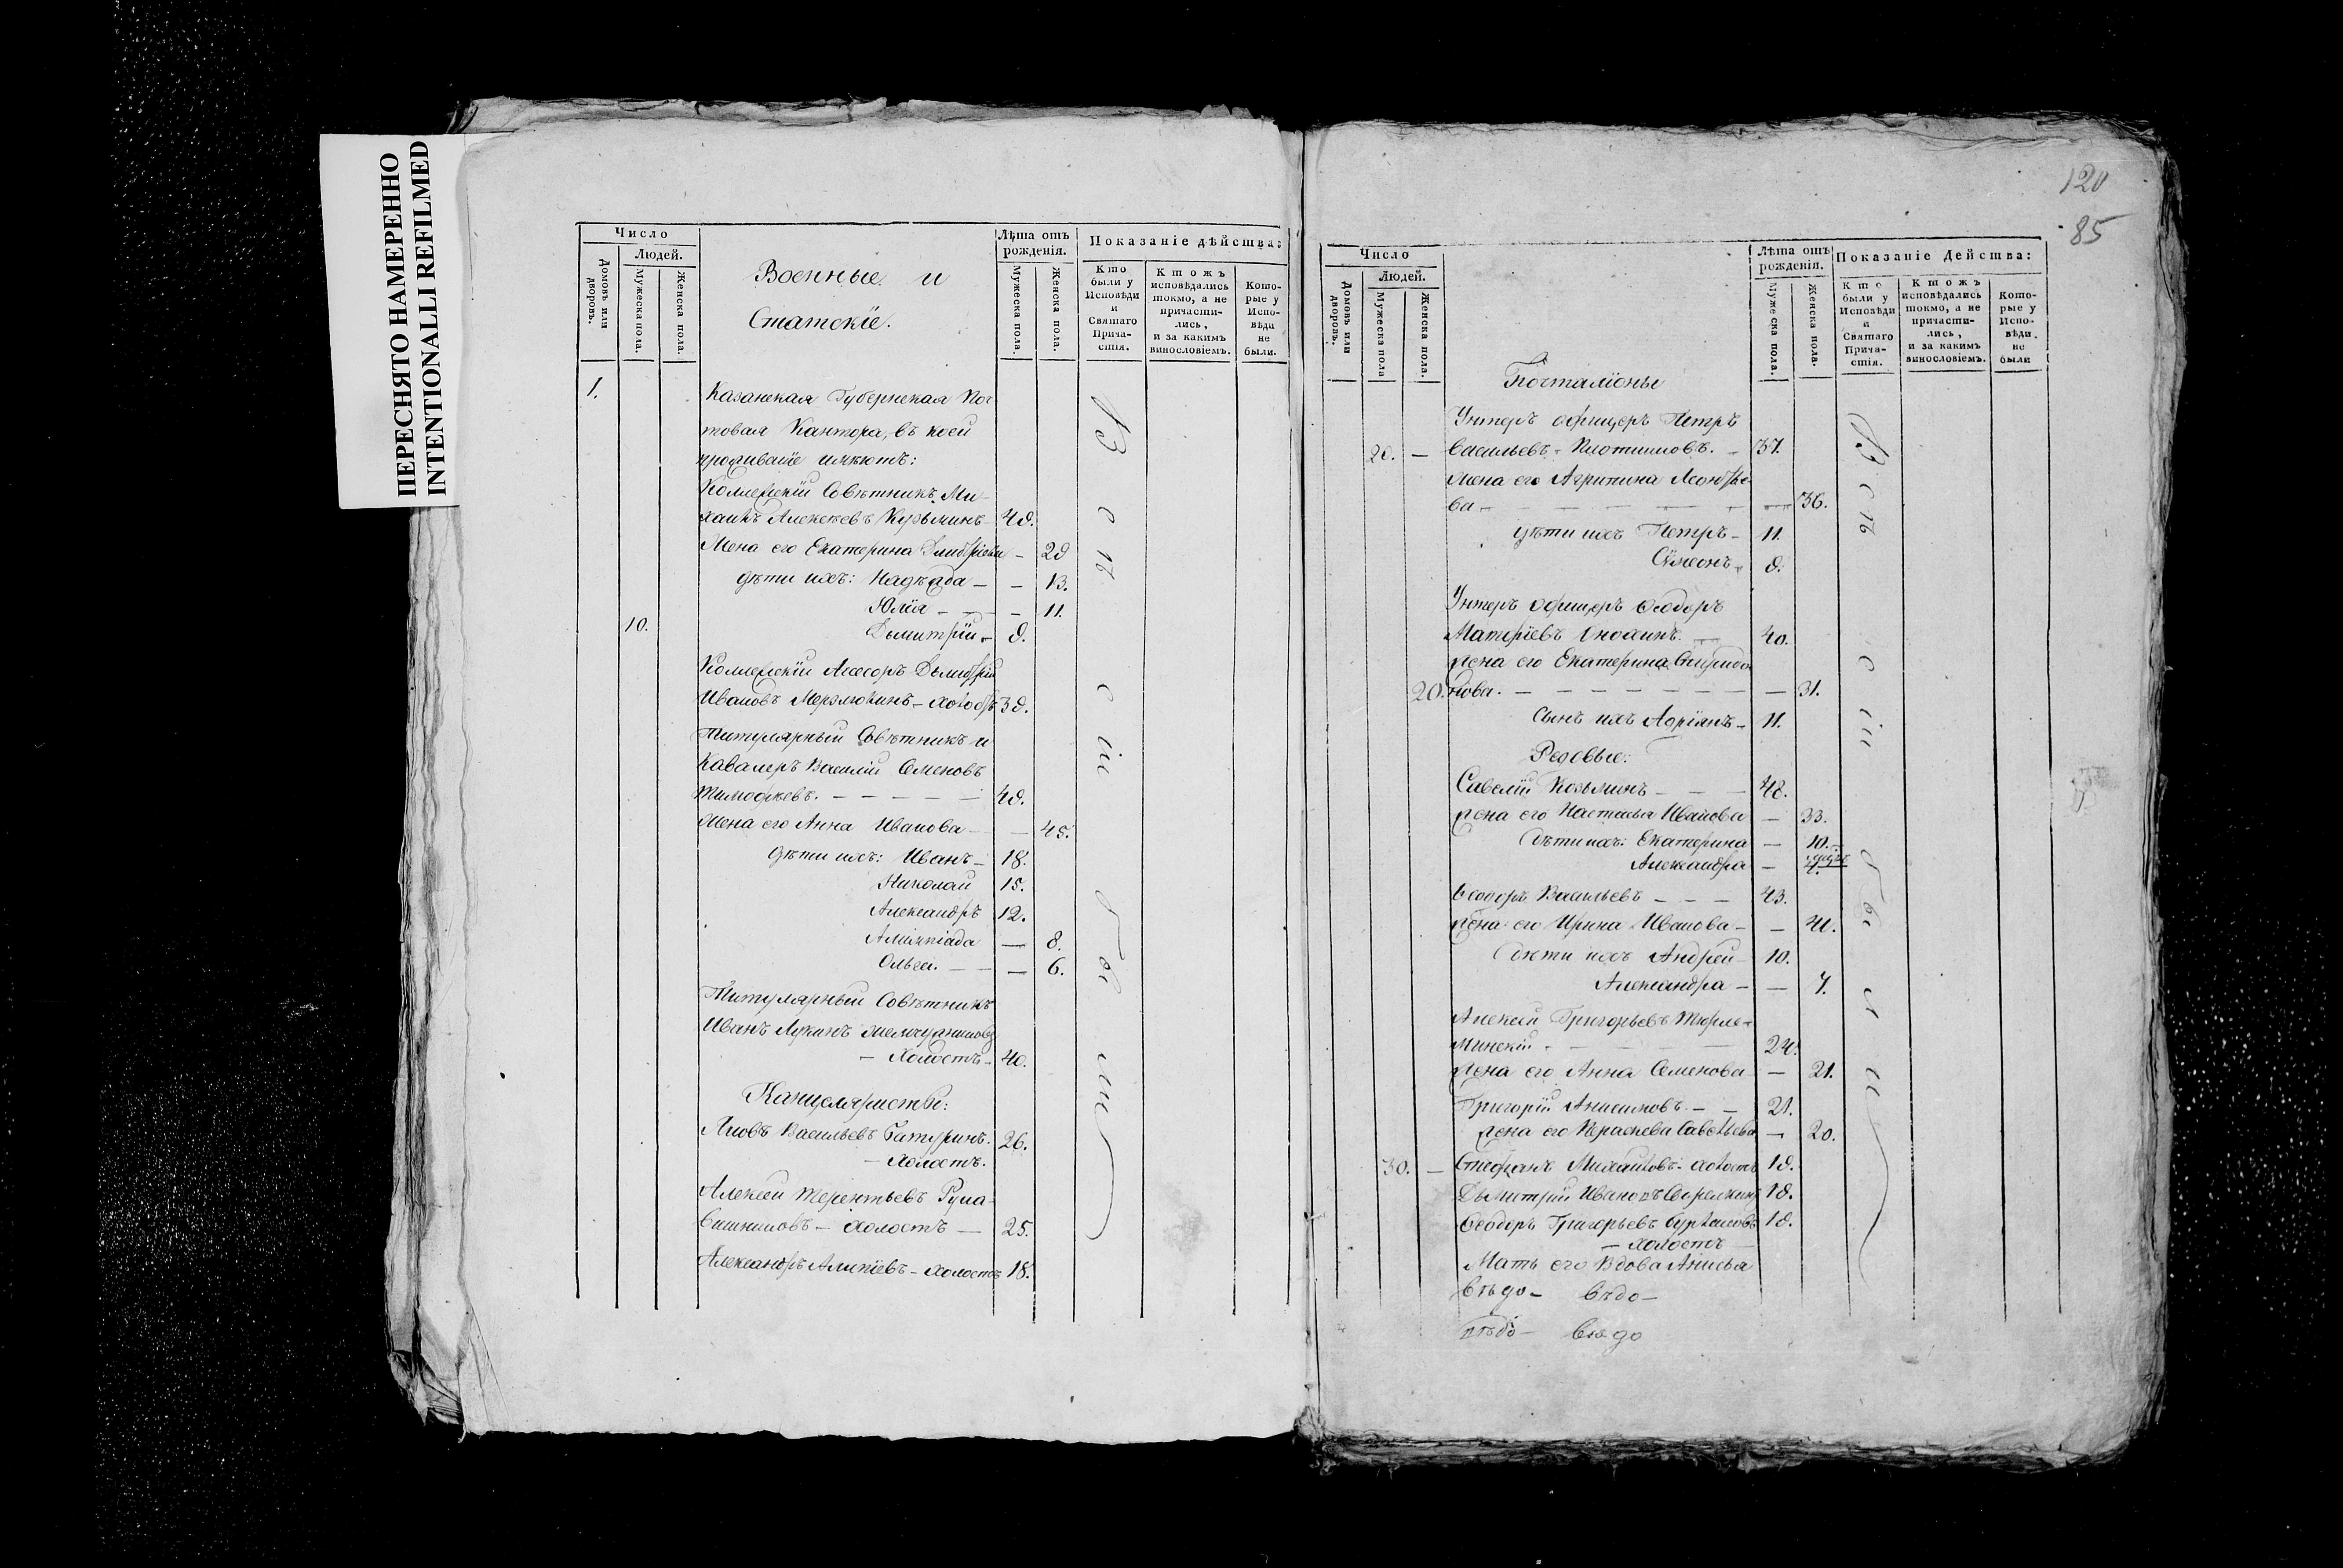 ПЕРЕСНЯТО НАМЕРЕННО
INTENTIONALLI REFILMED
Число
Людей.
Домовъ или дворовъ.
Мужеска пола.
Женска пола.
Военные и
Статскіе.
Лѣта отъ рожденія.
Мужеска пола.
Женска пола.
Показаніе дѣйства:
Кто были у Исповѣди и Святаго Прича-стія.
Ктожъ исповѣдались токмо, а не причасти-лись, и за какимъ винословіемъ.
Кото-рые у Испо-вѣди не были.
1. Казанская Губернская Поч
товая Кантора, въ коей
проживаніе имѣютъ:
Коллежскій Совѣтникъ Ми-
хаилъ Алексѣевъ Кузьминъ 48.
Жена его Екатерина Дмитріева — 28
Дѣти ихъ: Надежда — — 13.
Юлія — — — 11.
10. Дымитрій — 8.
Коллежскій Асесоръ Дымитрій
Ивановъ Мерзлюкинъ — холостъ 38.
Титулярный Совѣтникъ и
Кавалеръ Василій Семеновъ
Тимофѣевъ. — — — — — 48.
Жена его Анна Иванова — — 45.
Дѣти ихъ: Иванъ — 18.
Николай 15.
Александръ 12.
— 8.
Ольга. — — — 6.
Титулярный Совѣтникъ
Иванъ Лукинъ
— Холостъ — 40.
Канцеляристы:
Васильевъ Батуринъ. 26.
— Холостъ.
Алексѣй Терентьевъ Рука-
вишниковъ — холостъ — 25.
Александръ Алипіевъ — холостъ 18.
Всѣ сіи были
120
85
Число
Людей.
Домовъ или дворовъ.
Мужеска пола
Женска пола.
Лѣта отъ рожденія.
Мужеска пола.
Женска пола.
Показаніе Действа:
Кто были у Исповѣди и Святаго Прича-стія.
Ктожъ исповѣдались токмо, а не причасти-лись, и за какимъ винословіемъ.
Кото-рые у Испо-вѣди не были
Почталіоны
Унтеръ офицеръ Петръ
20. — Васильевъ Плотниковъ. — 37.
Жена его Агрипина Леонтье
ва — — — — — — — 36.
Дѣти ихъ Петръ — 11.
Сѵмеонъ — 8.
Унтеръ офицеръ Ѳеодоръ
Матвіевъ 40.
Жена его Екатерина Спиридо
20. нова. — — — — — — — 31.
Сынъ ихъ Адріанъ — 11.
Редовые:
Савелій Козьминъ — — — 48.
Жена его Настасья Иванова — 33.
Дѣти ихъ: Екатерина — 10.
Александра —
Ѳеодоръ Васильевъ — — — 43.
Жена его Ирина Иванова — — 41.
Дѣти ихъ Андрей 10.
Александра — — 7.
Алексѣй Григорьевъ
24.
Жена его Анна Семенова — 21.
Григорій Анисимовъ. — — 21.
Жена его Праскева Савельева — 20.
30. — Стефанъ Михайловъ холостъ 18.
Дымитрій Ивановъ 18.
Ѳеодоръ Григорьевъ 18.
— холостъ
Мать его Вдова Анисья
Всѣ сіи были